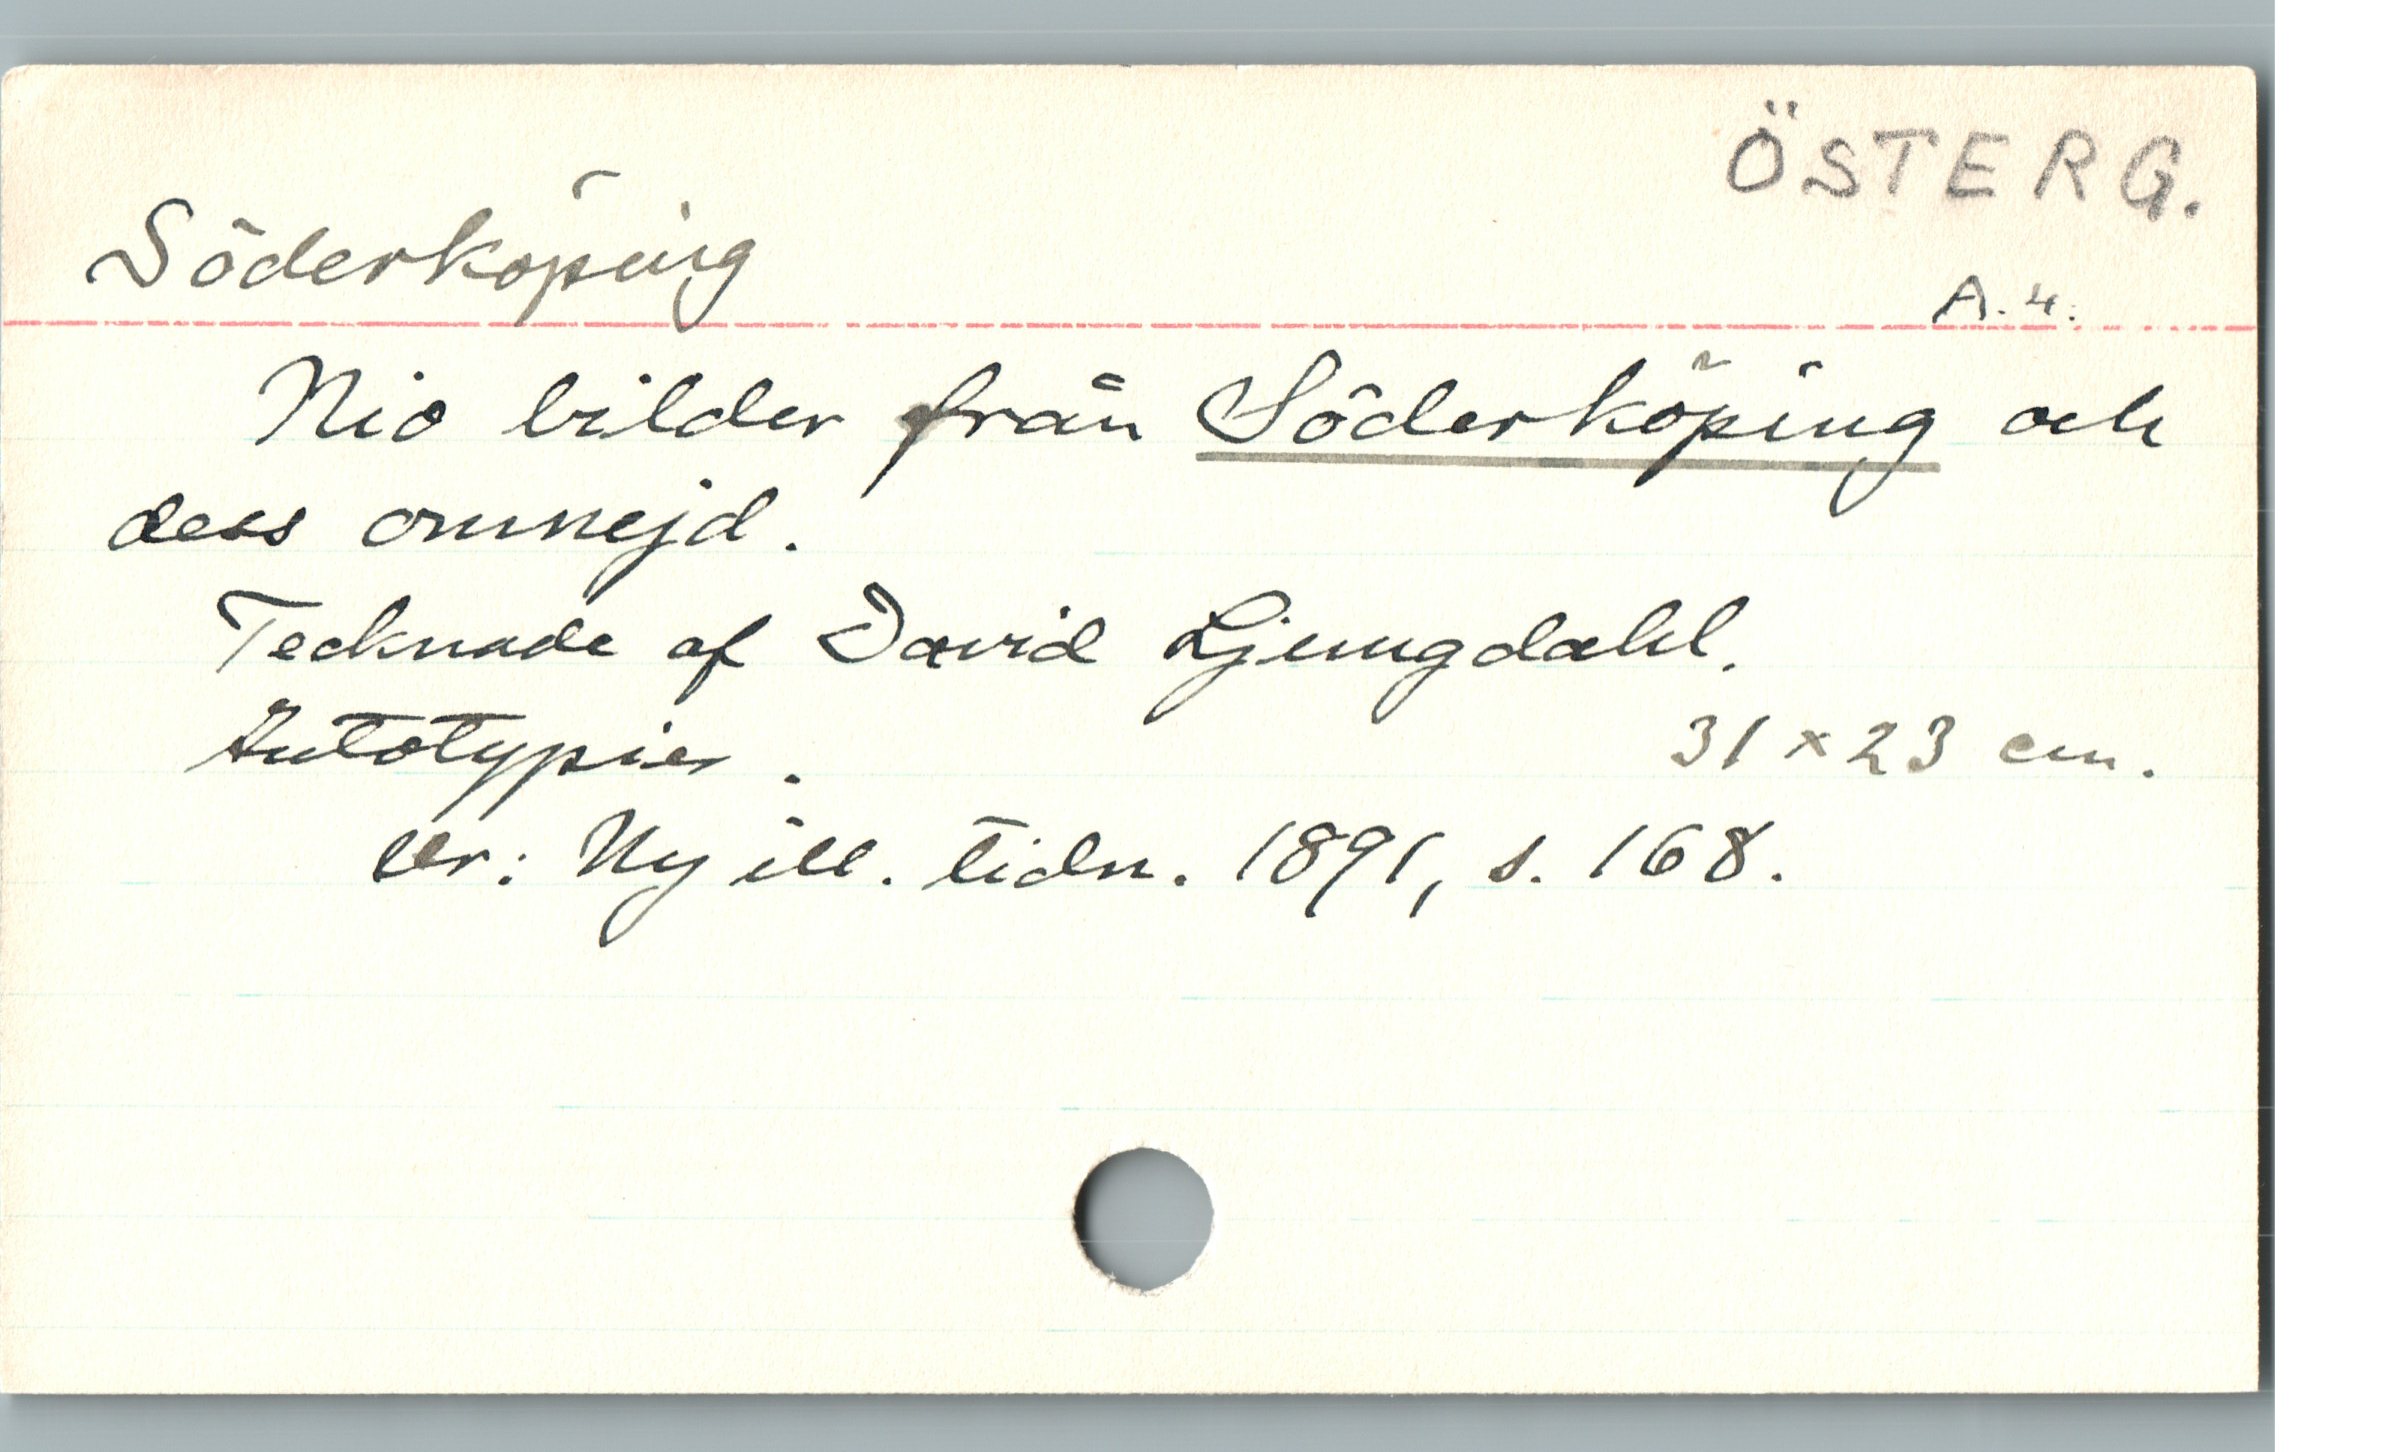 ÖSTERG.
Söderköping
A.4.
Nio bilder från Söderköping och
dess omnejd.
Tecknade af David Ljungdahl.
Autotypier. 31 x 23 cm.
Ur: Ny ill. tidn. 1891, s. 168.